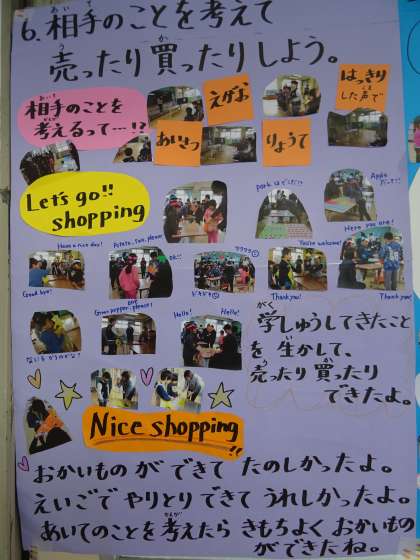 6. 相手のことを考えて
売ったり買ったりしよう。
相手のことを
考えるって…!?
えがお
はっきり
した声で
あいさつ
りょうて
Let's go!!
shopping
Apple
Have a nice day!
Potato, two, please
OK!!
You're welcome!
Here you are!
Good bye!
Thank you!
Thank you!
Green pepper, please!
Hello!
Hello!
学しゅうしてきたこと
を生かして、
売ったり買ったり
できたよ。
Nice shopping!!
おかいものができてたのしかったよ。
えいごでやりとりできてうれしかったよ。
あいてのことを考えたらきもちよくおかいもの
ができたね。